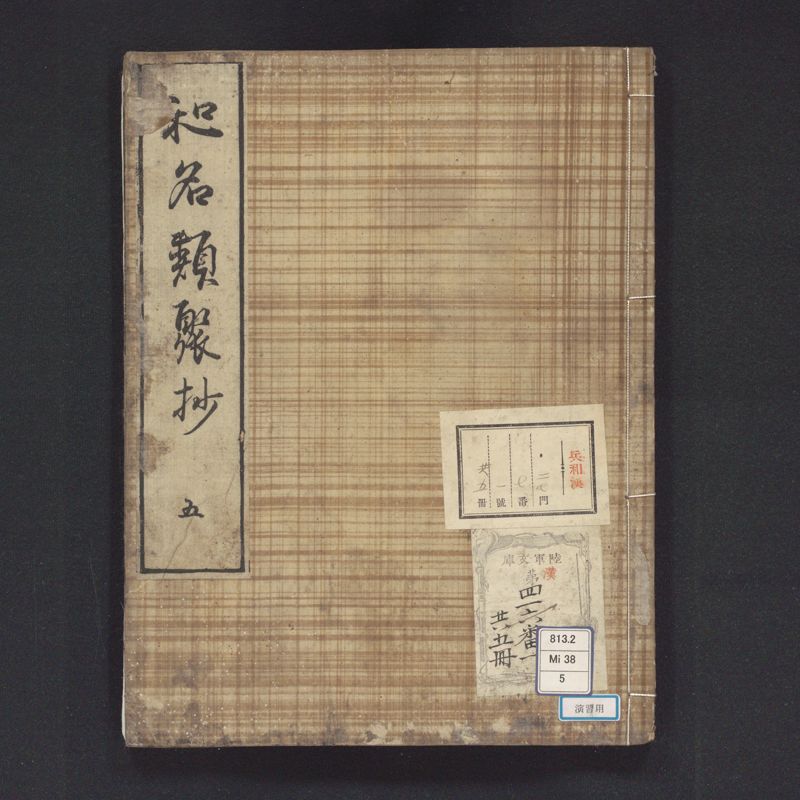 和名類聚抄 五
兵和漢
門
番
一號
共五冊
陸軍文庫
漢
第四一六番
共五冊
813.2
Mi 38
5
演習用